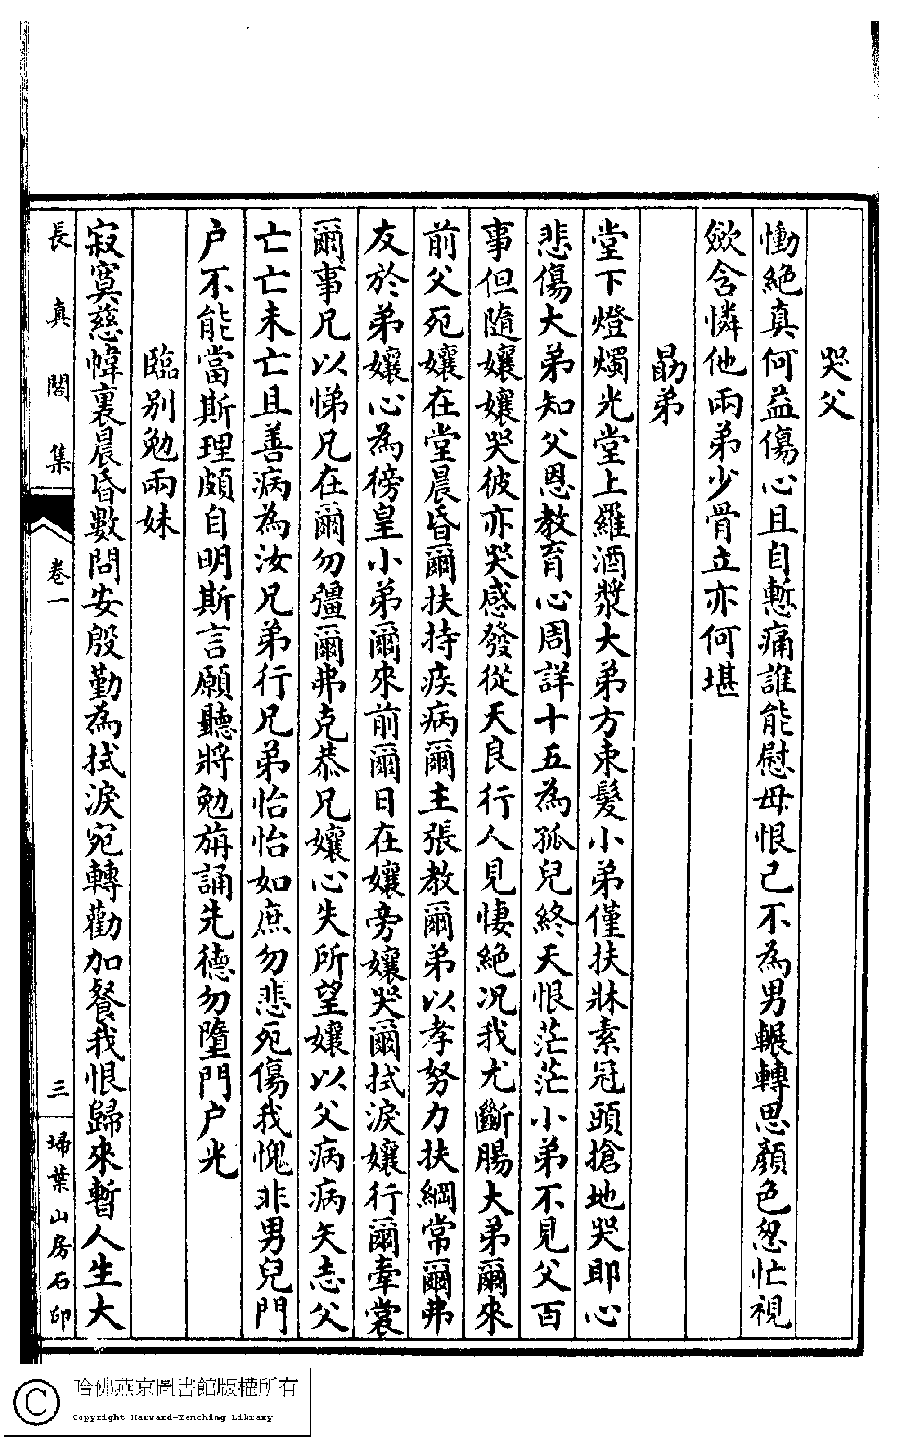 哭父
慟絕真何益傷心且自慙痛誰能慰母恨己不為男輾轉思顏色怱忙視
歛含憐他兩弟少骨立亦何堪
勗弟
堂下燈燭光堂上羅酒漿大弟方束髮小弟僅扶牀素冠頭搶地哭耶心
悲傷大弟知父恩教育心周詳十五為孤兒終天恨茫茫小弟不見父百
事但隨孃孃哭彼亦哭感發從天良行人見悽絕况我尤斷腸大弟爾來
前父死孃在堂晨昏爾扶持疾病爾主張教爾弟以孝努力扶綱常爾弗
友於弟孃心為徬皇小弟爾來前爾日在孃旁孃哭爾拭淚孃行爾牽裳
爾事兄以悌兄在爾勿彊爾弗克恭兄孃心失所望孃以父病病矢志父
亡亡未亡且善病為汝兄弟行兄弟怡怡如庶勿悲死傷我愧非男兒門
户不能當斯理頗自明斯言願聽將勉旃誦先德勿墮門户光
臨別勉兩妹
寂寞慈幃裏晨昏數問安殷勤為拭淚宛轉勸加餐我恨歸來暫人生大
長真閣集
卷一
三
埽葉山房石印
哈佛燕京圖書館版權所有
Copyright Harvard-Yenching Library